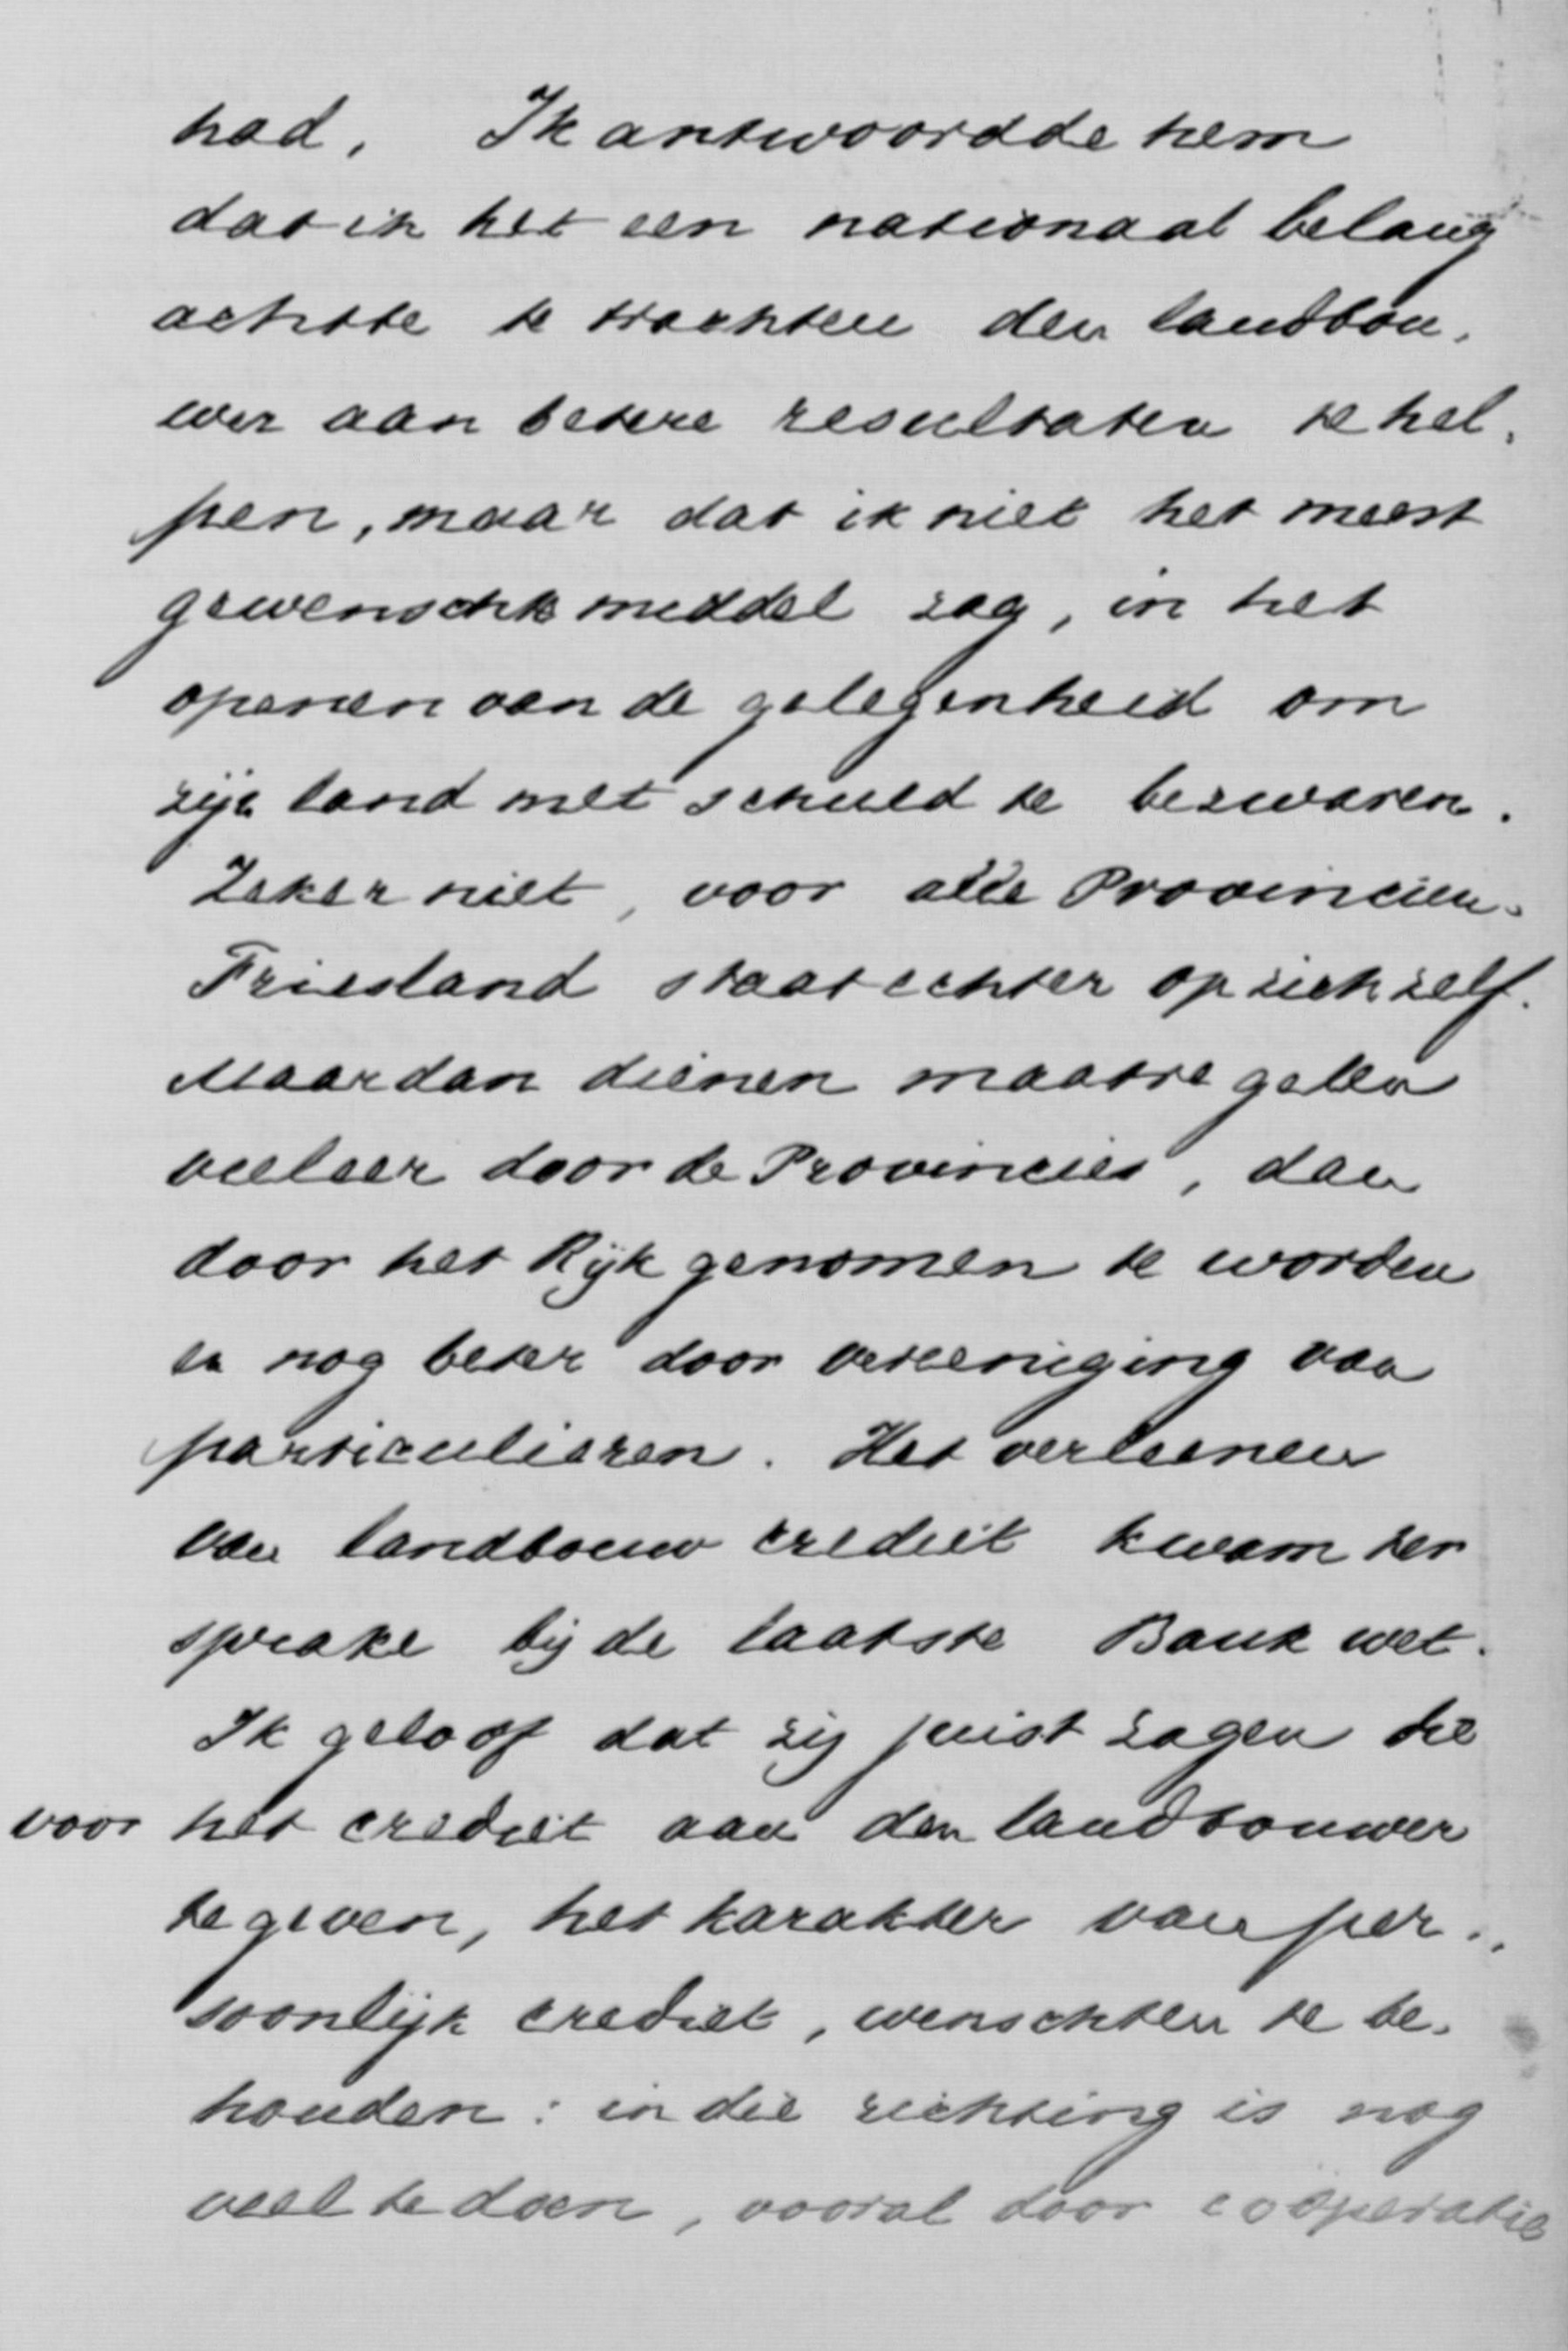 had. Ik antwoordde hem
dat ik het een nationaal belang
achtte te trachten den landbou-
wer aan betere resultaten te hel-
pen, maar dat ik niet het meest
gewenschte middel zag, in het
openen van de gelegenheid om
zijn land met schuld te bezwaren.
Zeker niet, voor alle Provincien.
Friesland staat echter op zich zelf.
Maar dan dienen maatregelen
veeleer door de Provincies, dan
door het Rijk genomen te worden
en nog beter door vereeniging van
particulieren. Het verleenen
van landbouw crediet kwam ter
sprake bij de laatste Bank wet.
Ik geloof dat zij juist zagen die
voor het crediet aan den landbouwer
te geven, het karakter van per-
soonlijk crediet, wenschten te be-
houden: in die richting is nog
veel te doen, vooral door coöperatie